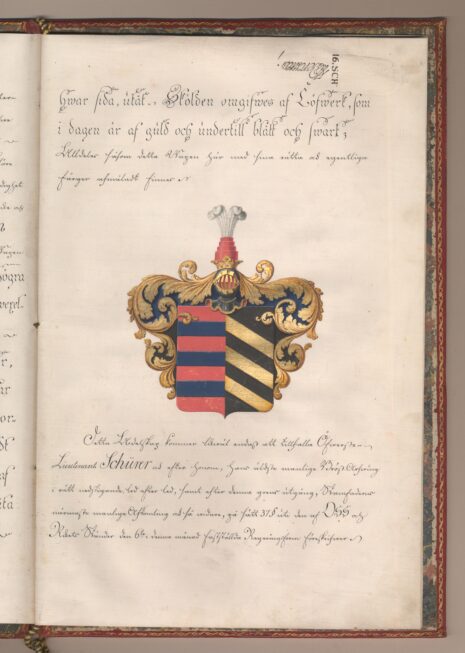 16. SCH
hwar sida, utåt. Skölden omgifwes af Löfwerk, som
i dagen är af guld och undertill blått och swart;
Alldeles såsom detta Wapen här med sina rätta och egentliga
färger afmåladt finnes
Detta Adelskap kommer likwäl endast att tillfalla Öfwerste-
Lieutenant Schürer och efter Honom, Hans äldste manlige Bröst-Arfwinge
i rätt nedstigande led efter led, samt efter denna grens utgång, Stamfadrens
närmaste manlige Afkomling och så widare, på sätt 37§ uti den af Oss och
Rikets Ständer den 6te denna månad fastställda Regeringsform föreskrifwer
ögra
wexel-